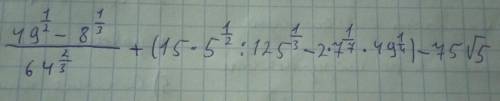 \frac{49^{\frac{1}{2}} - 8^{\frac{1}{3}}}{64^{\frac{2}{3}}} + (15 \cdot 5^{\frac{1}{2}} : 125^{\frac{1}{3}} - 2 \cdot 7^{\frac{1}{7}} \cdot 49^{\frac{1}{4}}) - 75\sqrt{5}